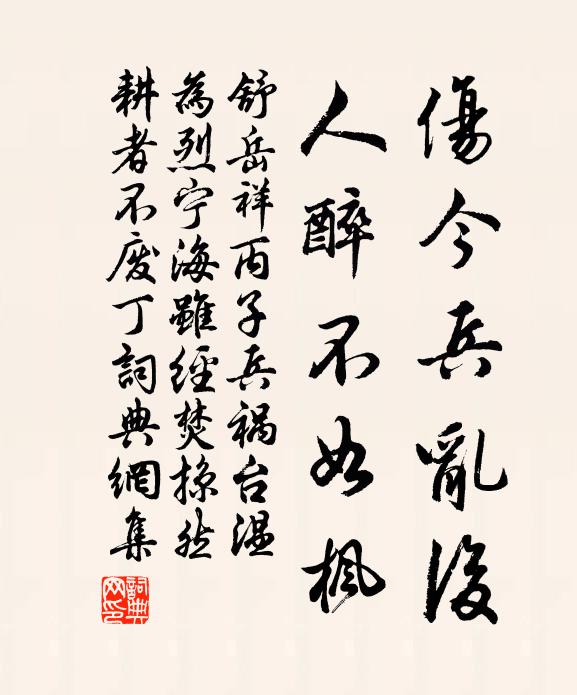 傷今兵亂後
人醉不如楓
舒岳祥丙子兵禍台溫
為烈宁海雖經焚掠然
耕者不廢丁詞典網集
詞典
网印